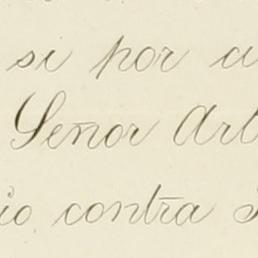 si por a
Señor Art
io contra